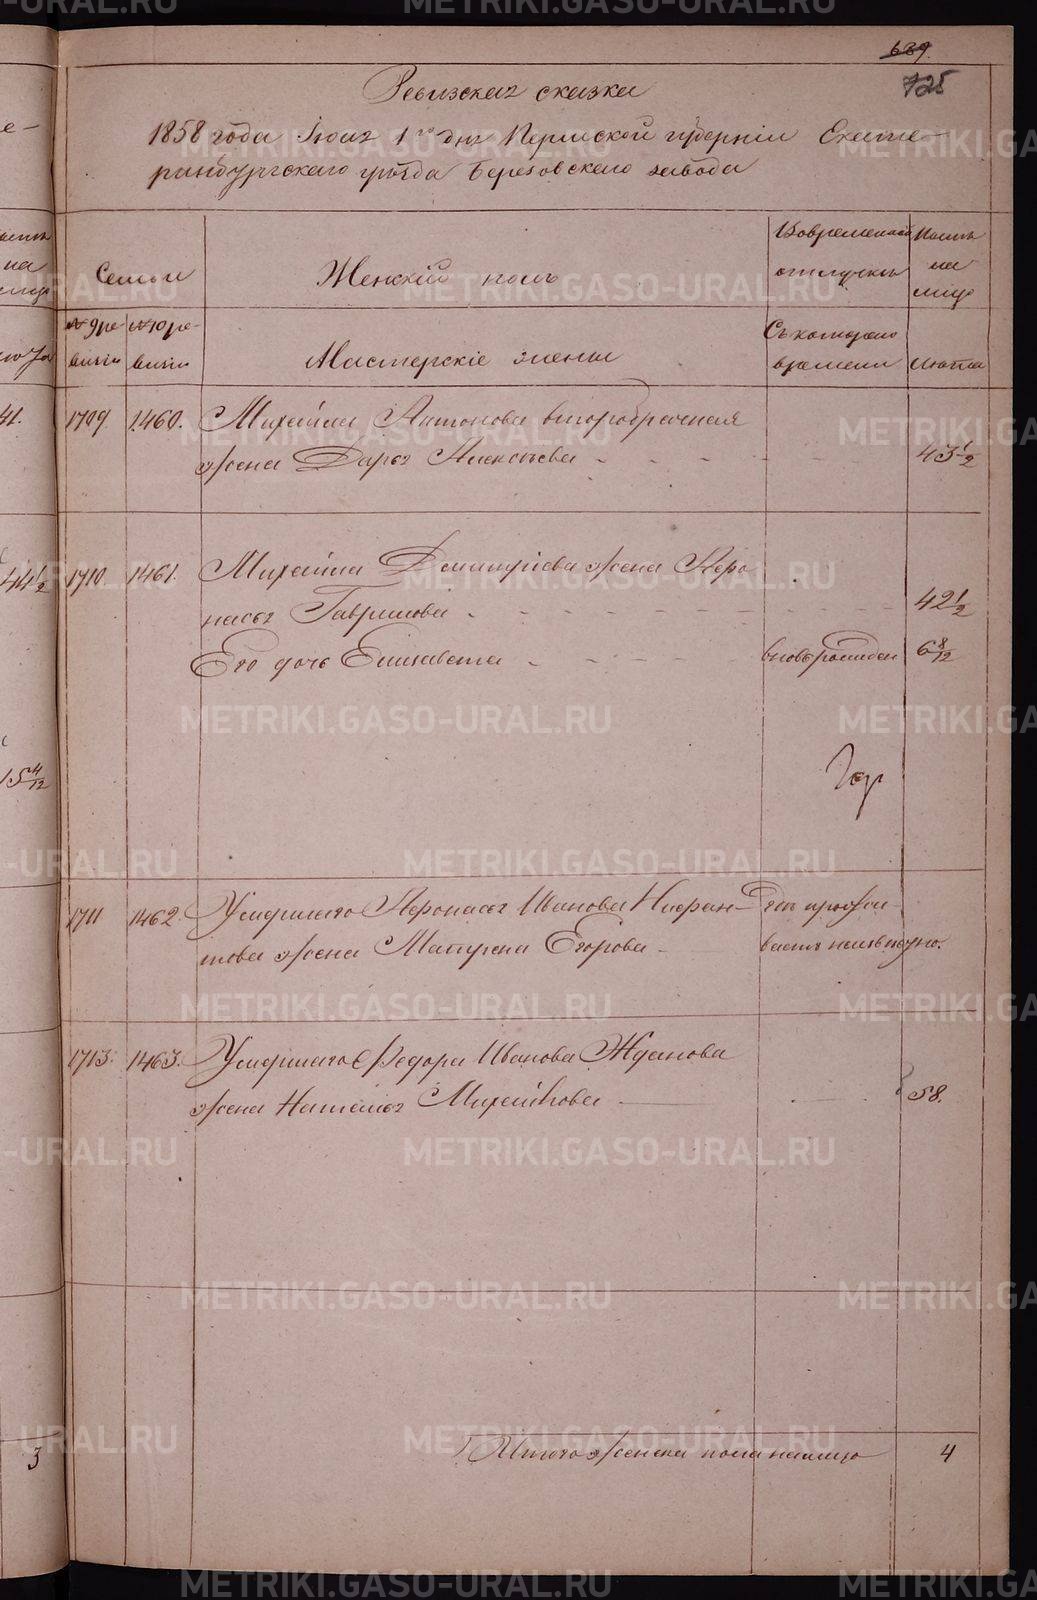 689.
725
Ревизская сказка
1858 года Июня 1го дня Пермской губернии Екате-
ринбургскаго уѣзда Березовскаго завода
Семьи
Женскій полъ
Вовременной
отлучкѣ
Нынѣ
на
лицо
№ 9 ре-
визіи
№ 10 ре-
визіи
Мастерскіе жены
Съ котораго
времени
Лѣта
1709. 1460. Михайла Антонова второбрачная
жена Дарья Алексѣева 43 1/2
1710. 1461. Михайла Дмитріева жена Афо
насья Гаврилова 42 1/2
Его дочь Елисавета вновьрожден 6 8/12
1711 1462. Умершаго Афонасья Иванова
жена Матрена Егорова
Гдѣ прожи-
ваетъ неизвѣстно.
1713. 1463. Умершаго Федора Иванова Жданова
жена Наталья Михайлова 58.
Итого женска пола налицо 4
41.
44 1/2
15 4/12
3
METRIKI.GASO-URAL.RU